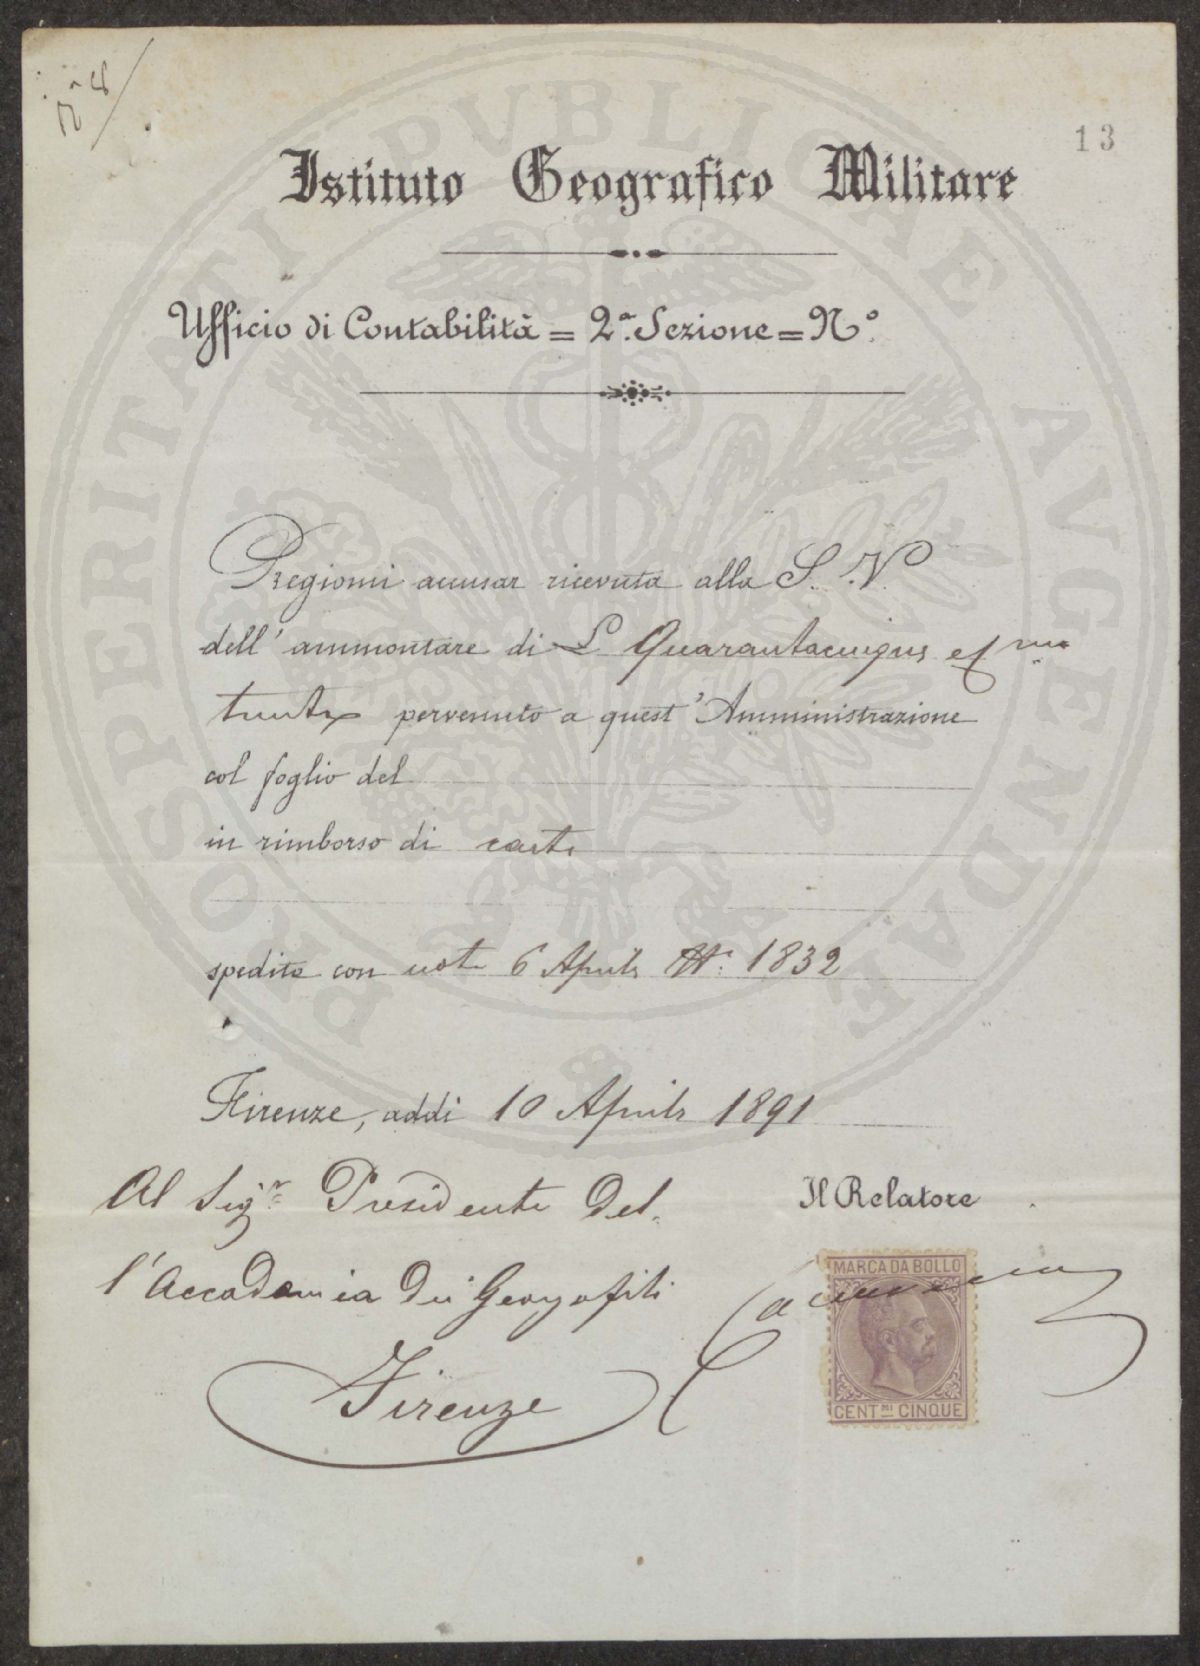 N° 8
13
Istituto Geografico Militare
Ufficio di Contabilità = 2ª. Sezione = N°.
Pregiomi accusar ricevuta alla S. V.
dell' ammontare di L Quarantacinque e
trenta pervenuto a quest' Amministrazione
col foglio del
in rimborso di carte
spedite con nota 6 Aprile N. 1832
Firenze, addi 10 Aprile 1891
Al Sigr. Presidente del-
l'Accademia dei Georgofili
Firenze
Il Relatore
MARCA DA BOLLO
CENTMI CINQUE
PROSPERITATI PVBLICAE AVGENDAE